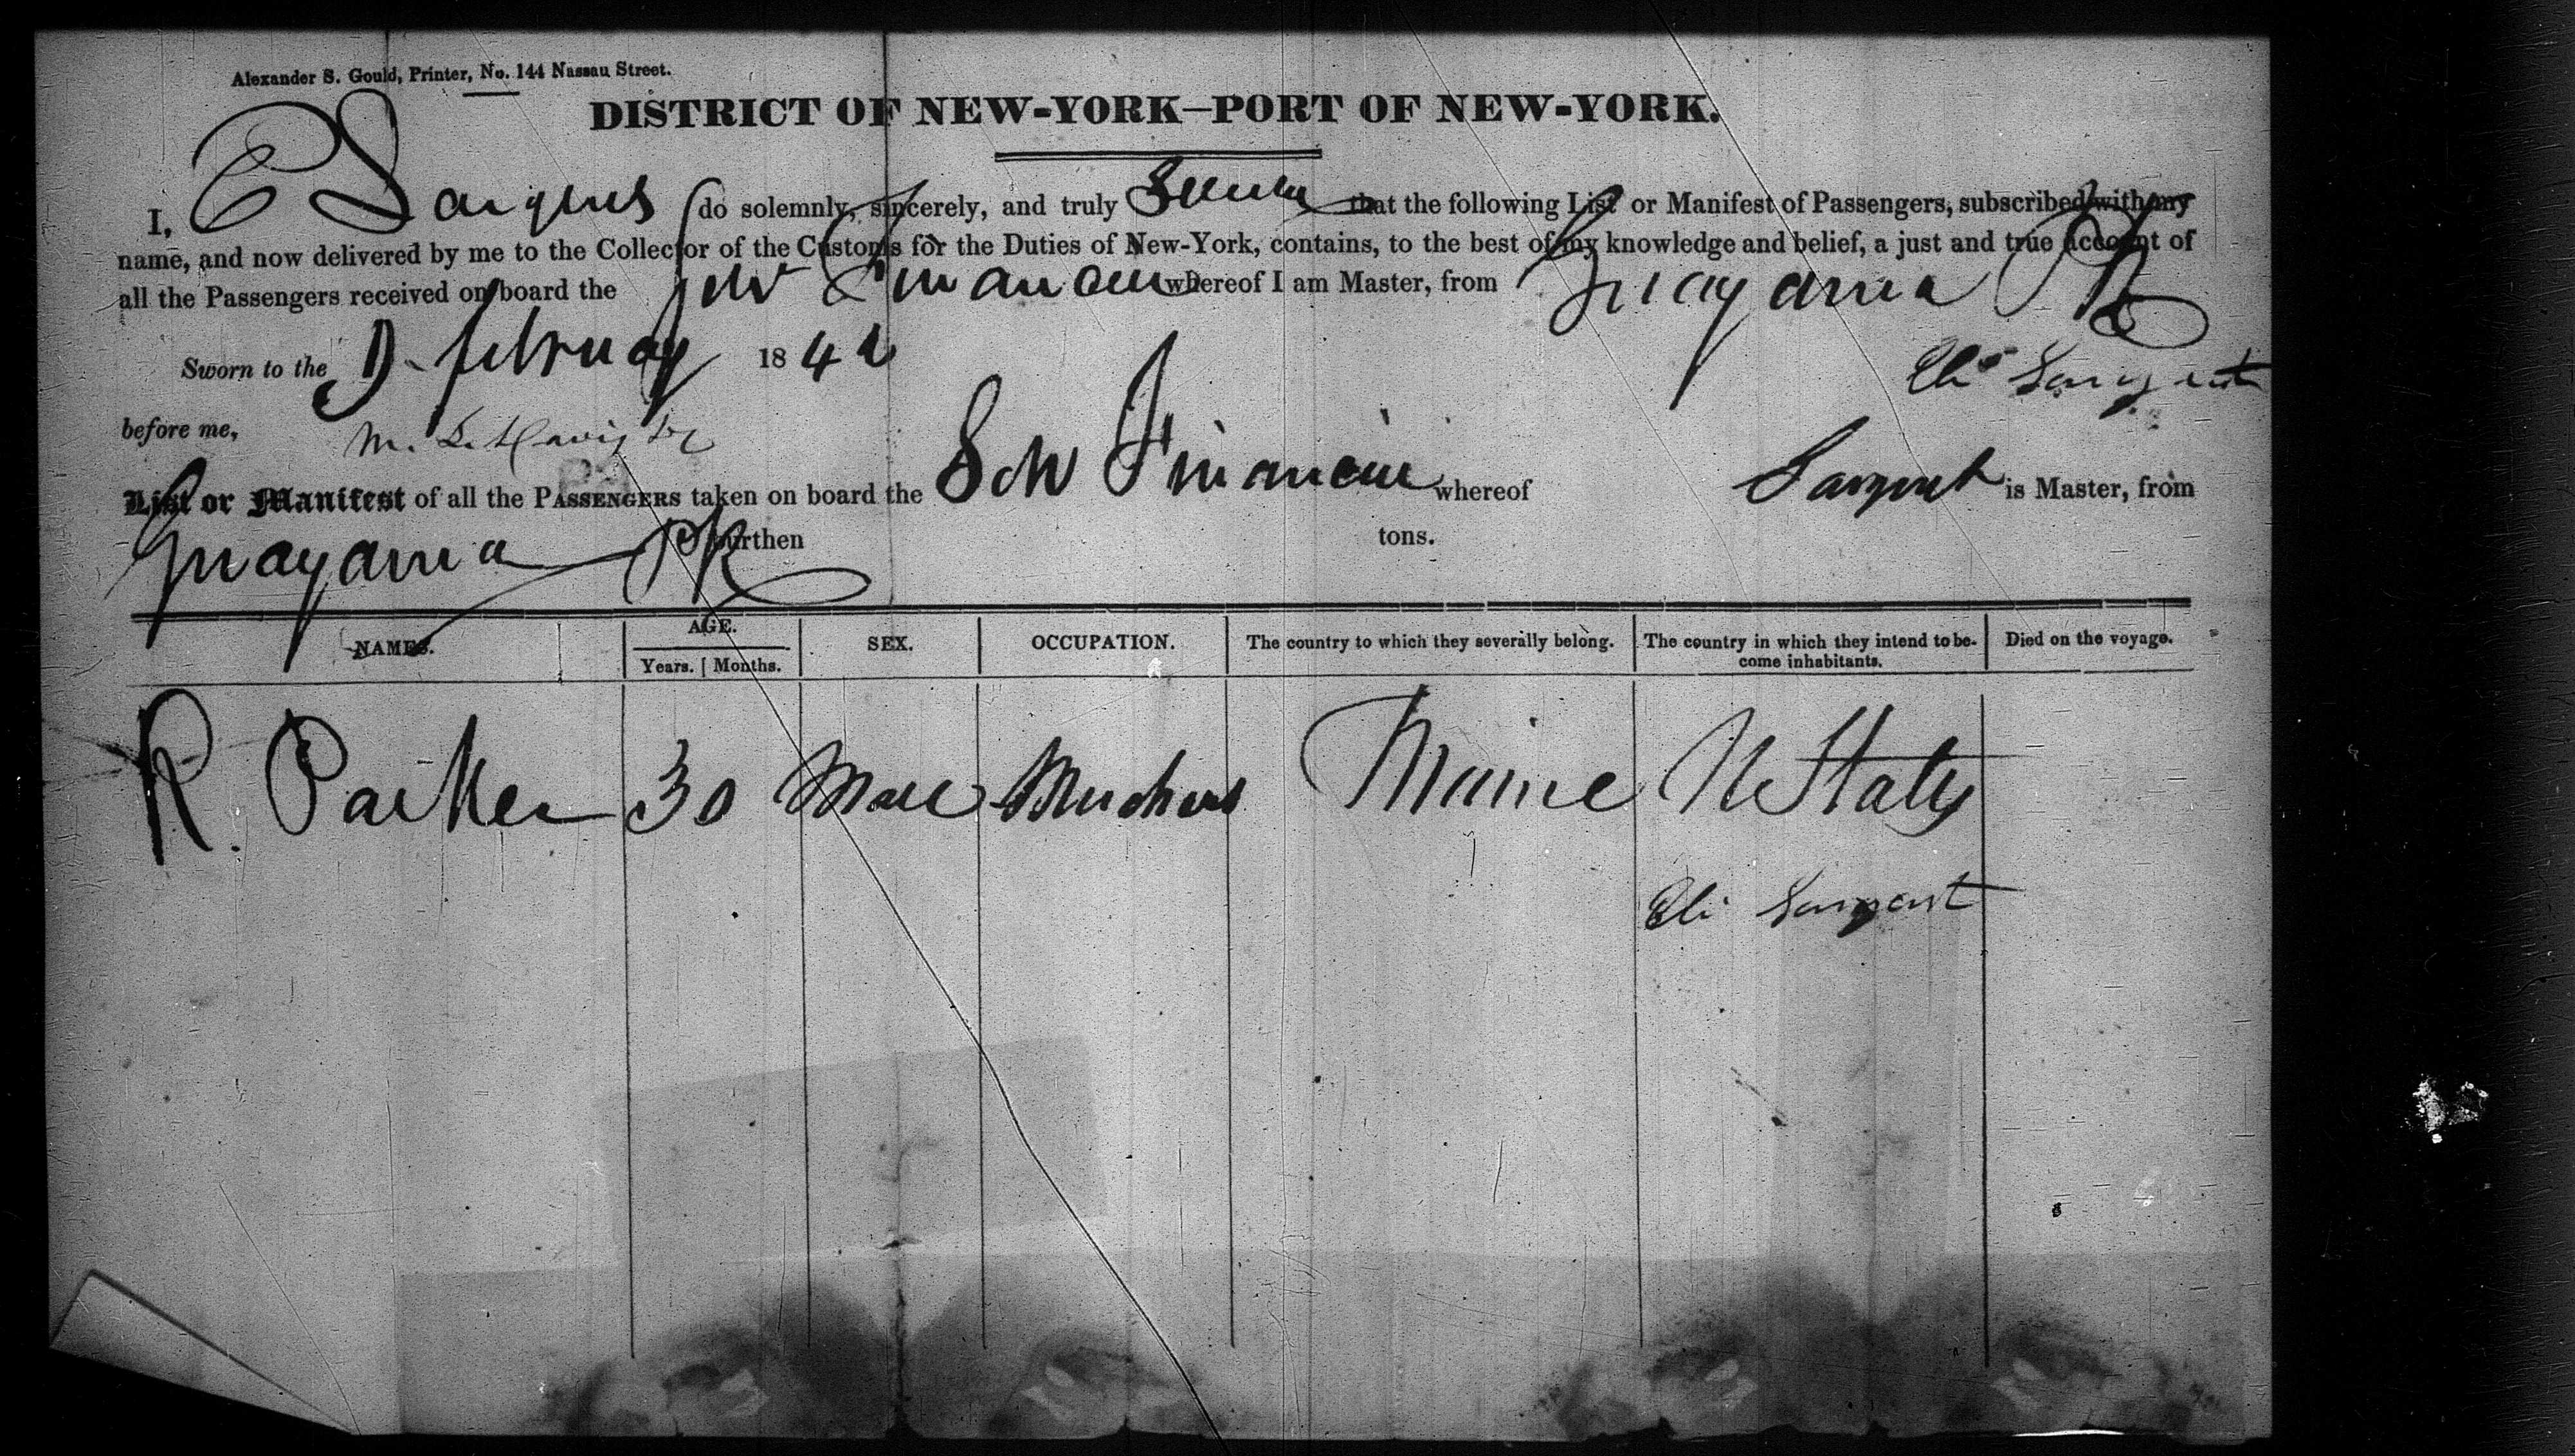 Alexander S. Gould, Printer, No. 144 Nassau Street.
DISTRICT OF NEW-YORK—PORT OF NEW-YORK.
I, E Sargent do solemnly, sincerely, and truly Swear that the following List or Manifest of Passengers, subscribed with my
name, and now delivered by me to the Collector of the Customs for the Duties of New-York, contains, to the best of my knowledge and belief, a just and true account of
all the Passengers received on board the Schr whereof I am Master, from Guayama PR
Sworn to the February 184
Eli Sargent
before me,
List or Manifest of all the PASSENGERS taken on board the Sch whereof Sargent is Master, from
Guayama PR burthen tons.
NAMES. AGE. SEX. OCCUPATION. The country to which they severally belong. The country in which they intend to be- Died on the voyage.
Years. Months. come inhabitants.
R. Parker 30 Male Merchant Maine U States
Eli Sargent